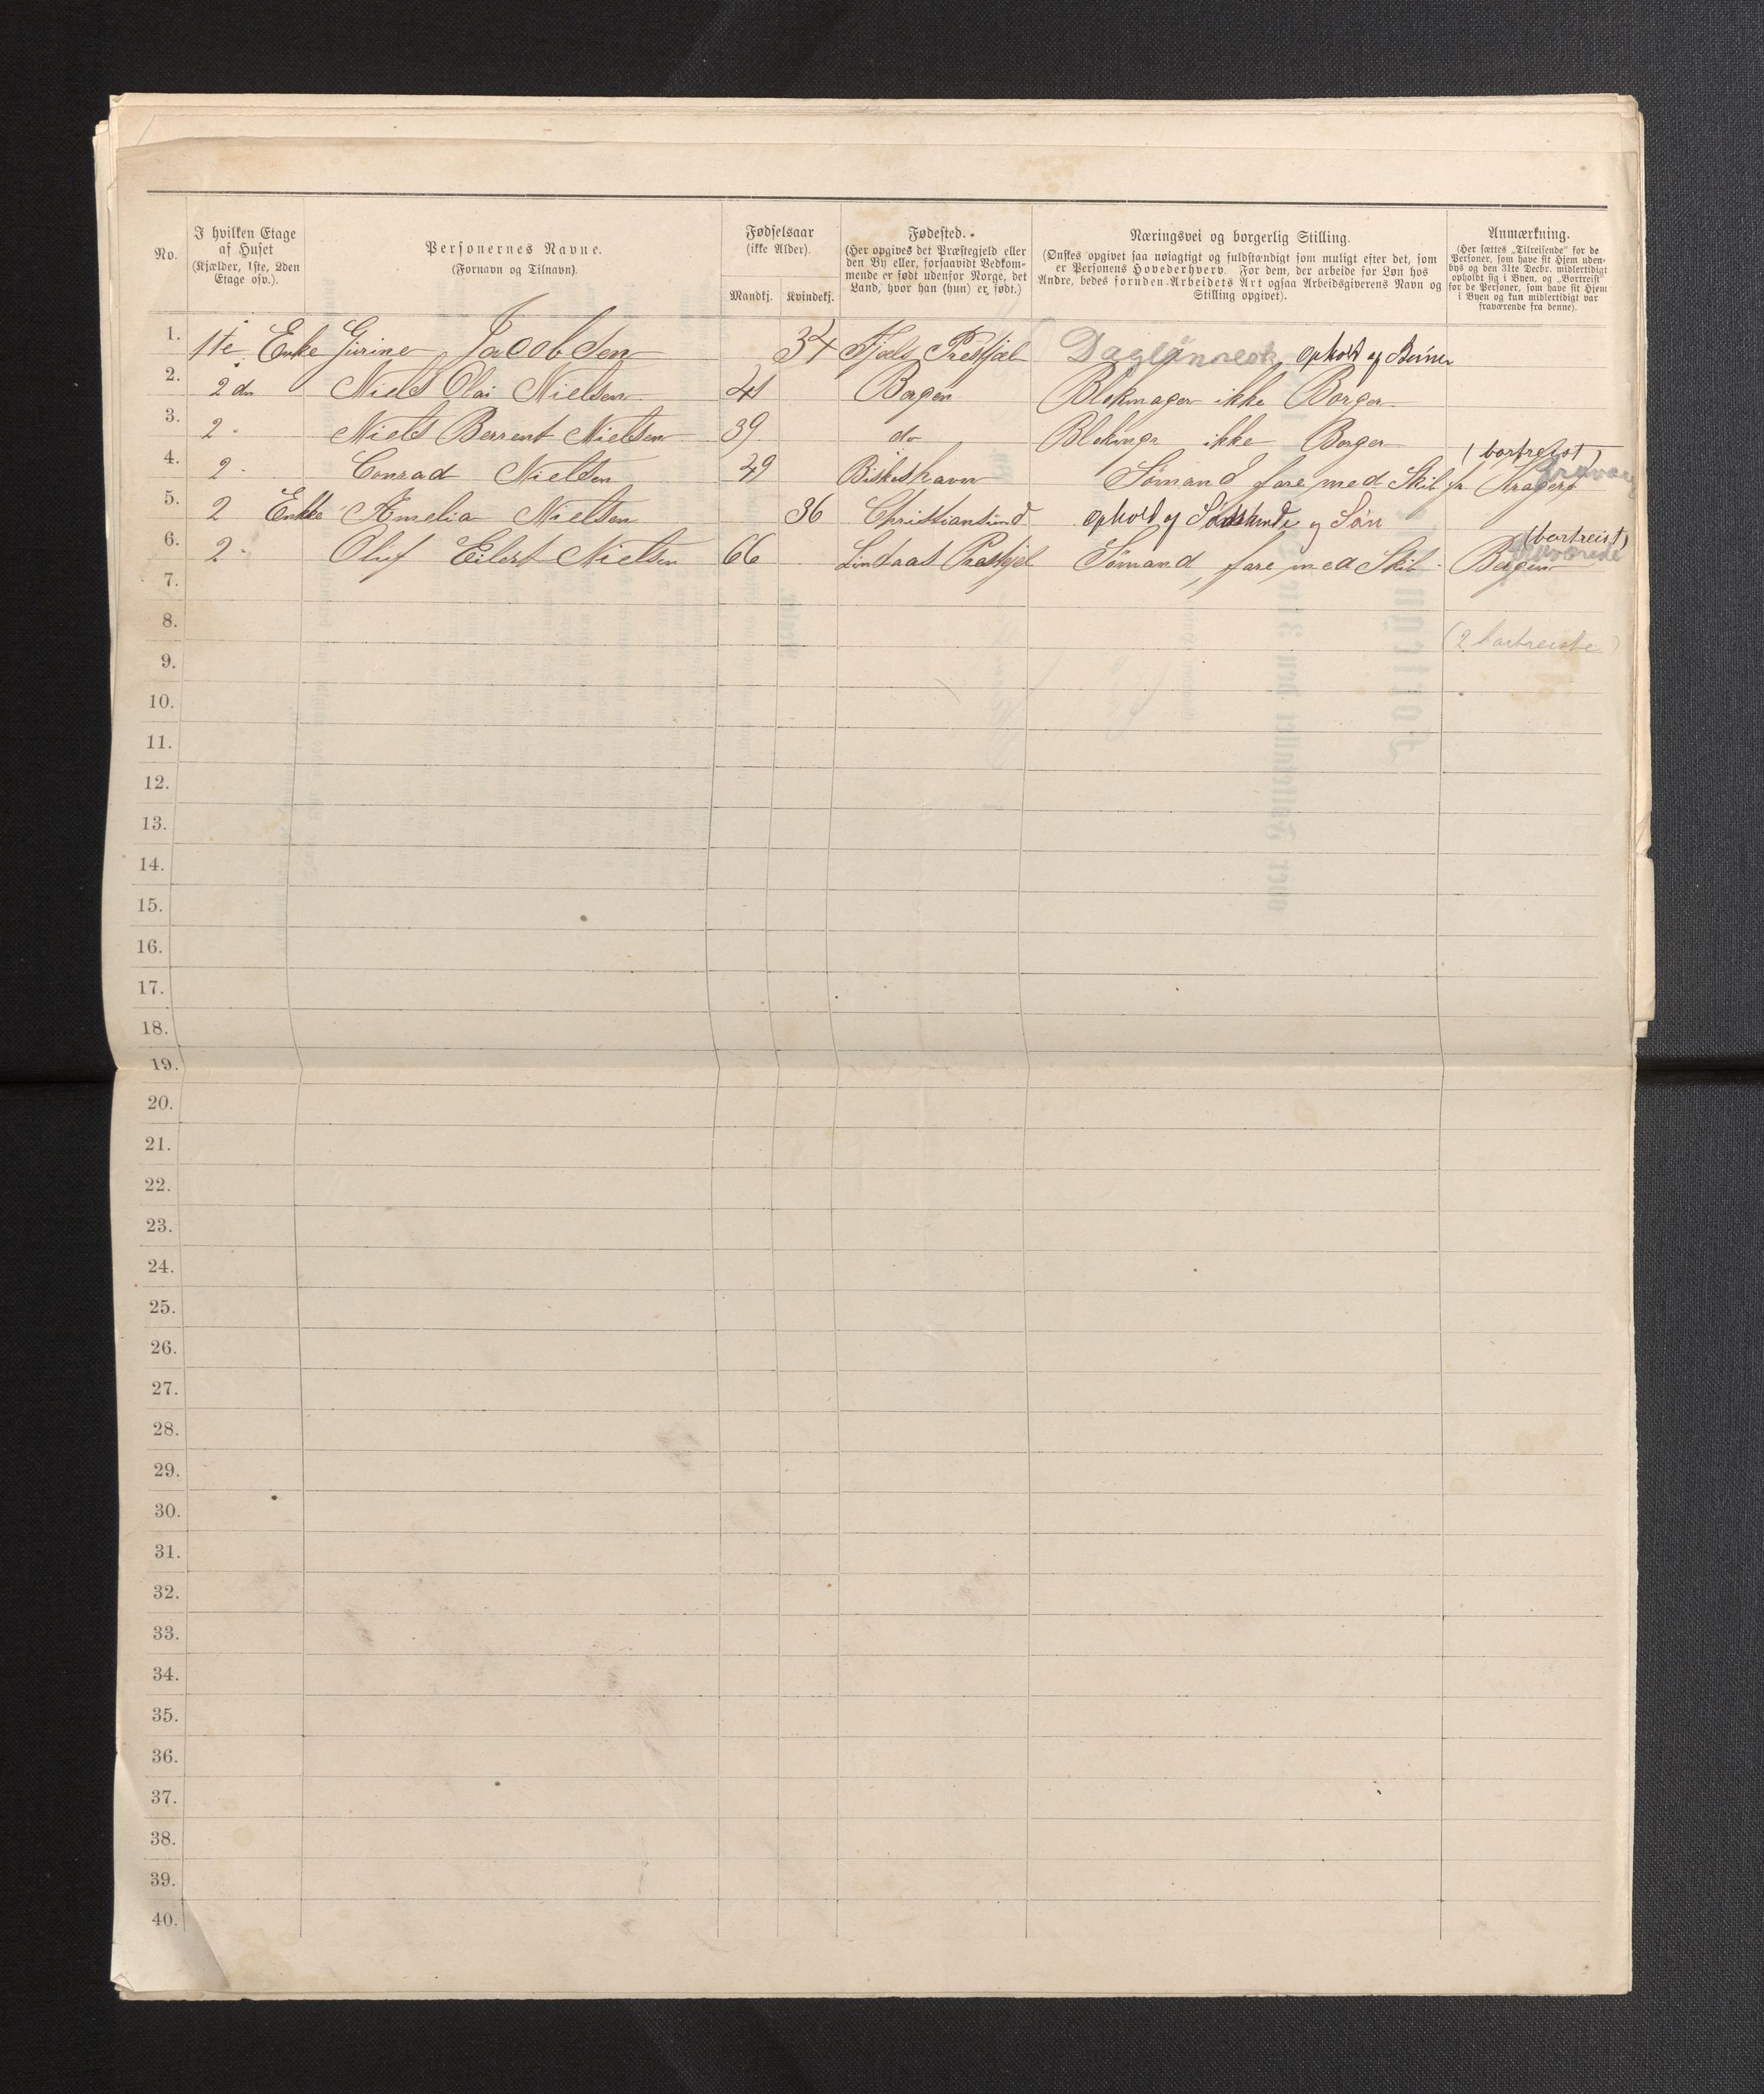 No.
I hvilken Etage
af Huset
(Kjælder, 1ste, 2den
Etage osv.).
Personernes Navne.
(Fornavn og Tilnavn).
Fødselsaar
(ikke Alder).
Mandkj. Kvindekj.
Fødested.
(Her opgives det Præstegjeld eller
den By eller, forsaavidt Vedkom-
mende er født udenfor Norge, det
Land, hvor han (hun) er født.)
Næringsvei og borgerlig Stilling.
(Ønskes opgivet saa nøiagtigt og fuldstændigt som muligt efter det, som
er Personens Hovederhverv. For dem, der arbeide for Løn hos
Andre, bedes foruden Arbeidets Art ogsaa Arbeidsgiverens Navn og
Stilling opgivet).
Anmærkning.
(Her sættes „Tilreisende“ for de
Personer, som have sit Hjem uden-
bys og den 31te Decbr. midlertidigt
opholdt sig i Byen, og „Bortreist“
for de Personer, som have sit Hjem
i Byen og kun midlertidigt var
fraværende fra denne).
1. 1te Enke Gjurine Jacobsen 34 Fjæls Prestjæl Daglönnersk ophold af Børnene
2. 2dn Niels Olai Nielsen 41 Bergen Blokmager ikke Borger
3. 2 - Niels Berrent Nielsen 39 do Blokmgr ikke Borger
(bortreist)
4. 2 - Conrad Nielsen 49 Biskeshavn Sømand fare med Skib fr Kragerø
5. 2 Enkke Amelia Nielsen 36 Christiansund ophold af og Søn
(bortreist)
6. 2 - Oluf Eilert Nielsen 66 Lindaas Prestgjel Sømand, fare med Skib - Bergen
fraværende
7.
8.
(2 bortreiste)
9.
10.
11.
12.
13.
14.
15.
16.
17.
18.
19.
20.
21.
22.
23.
24.
25.
26.
27.
28.
29.
30.
31.
32.
33.
34.
35.
36.
37.
38.
39.
40.